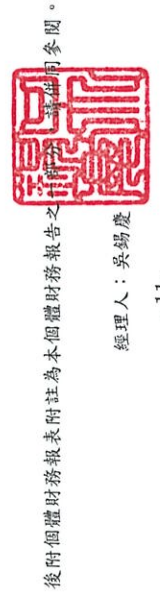 後附個體財務報表附註為本個體財務報告之一部分，請併同參閱。
經理人：吳錫慶
~11~